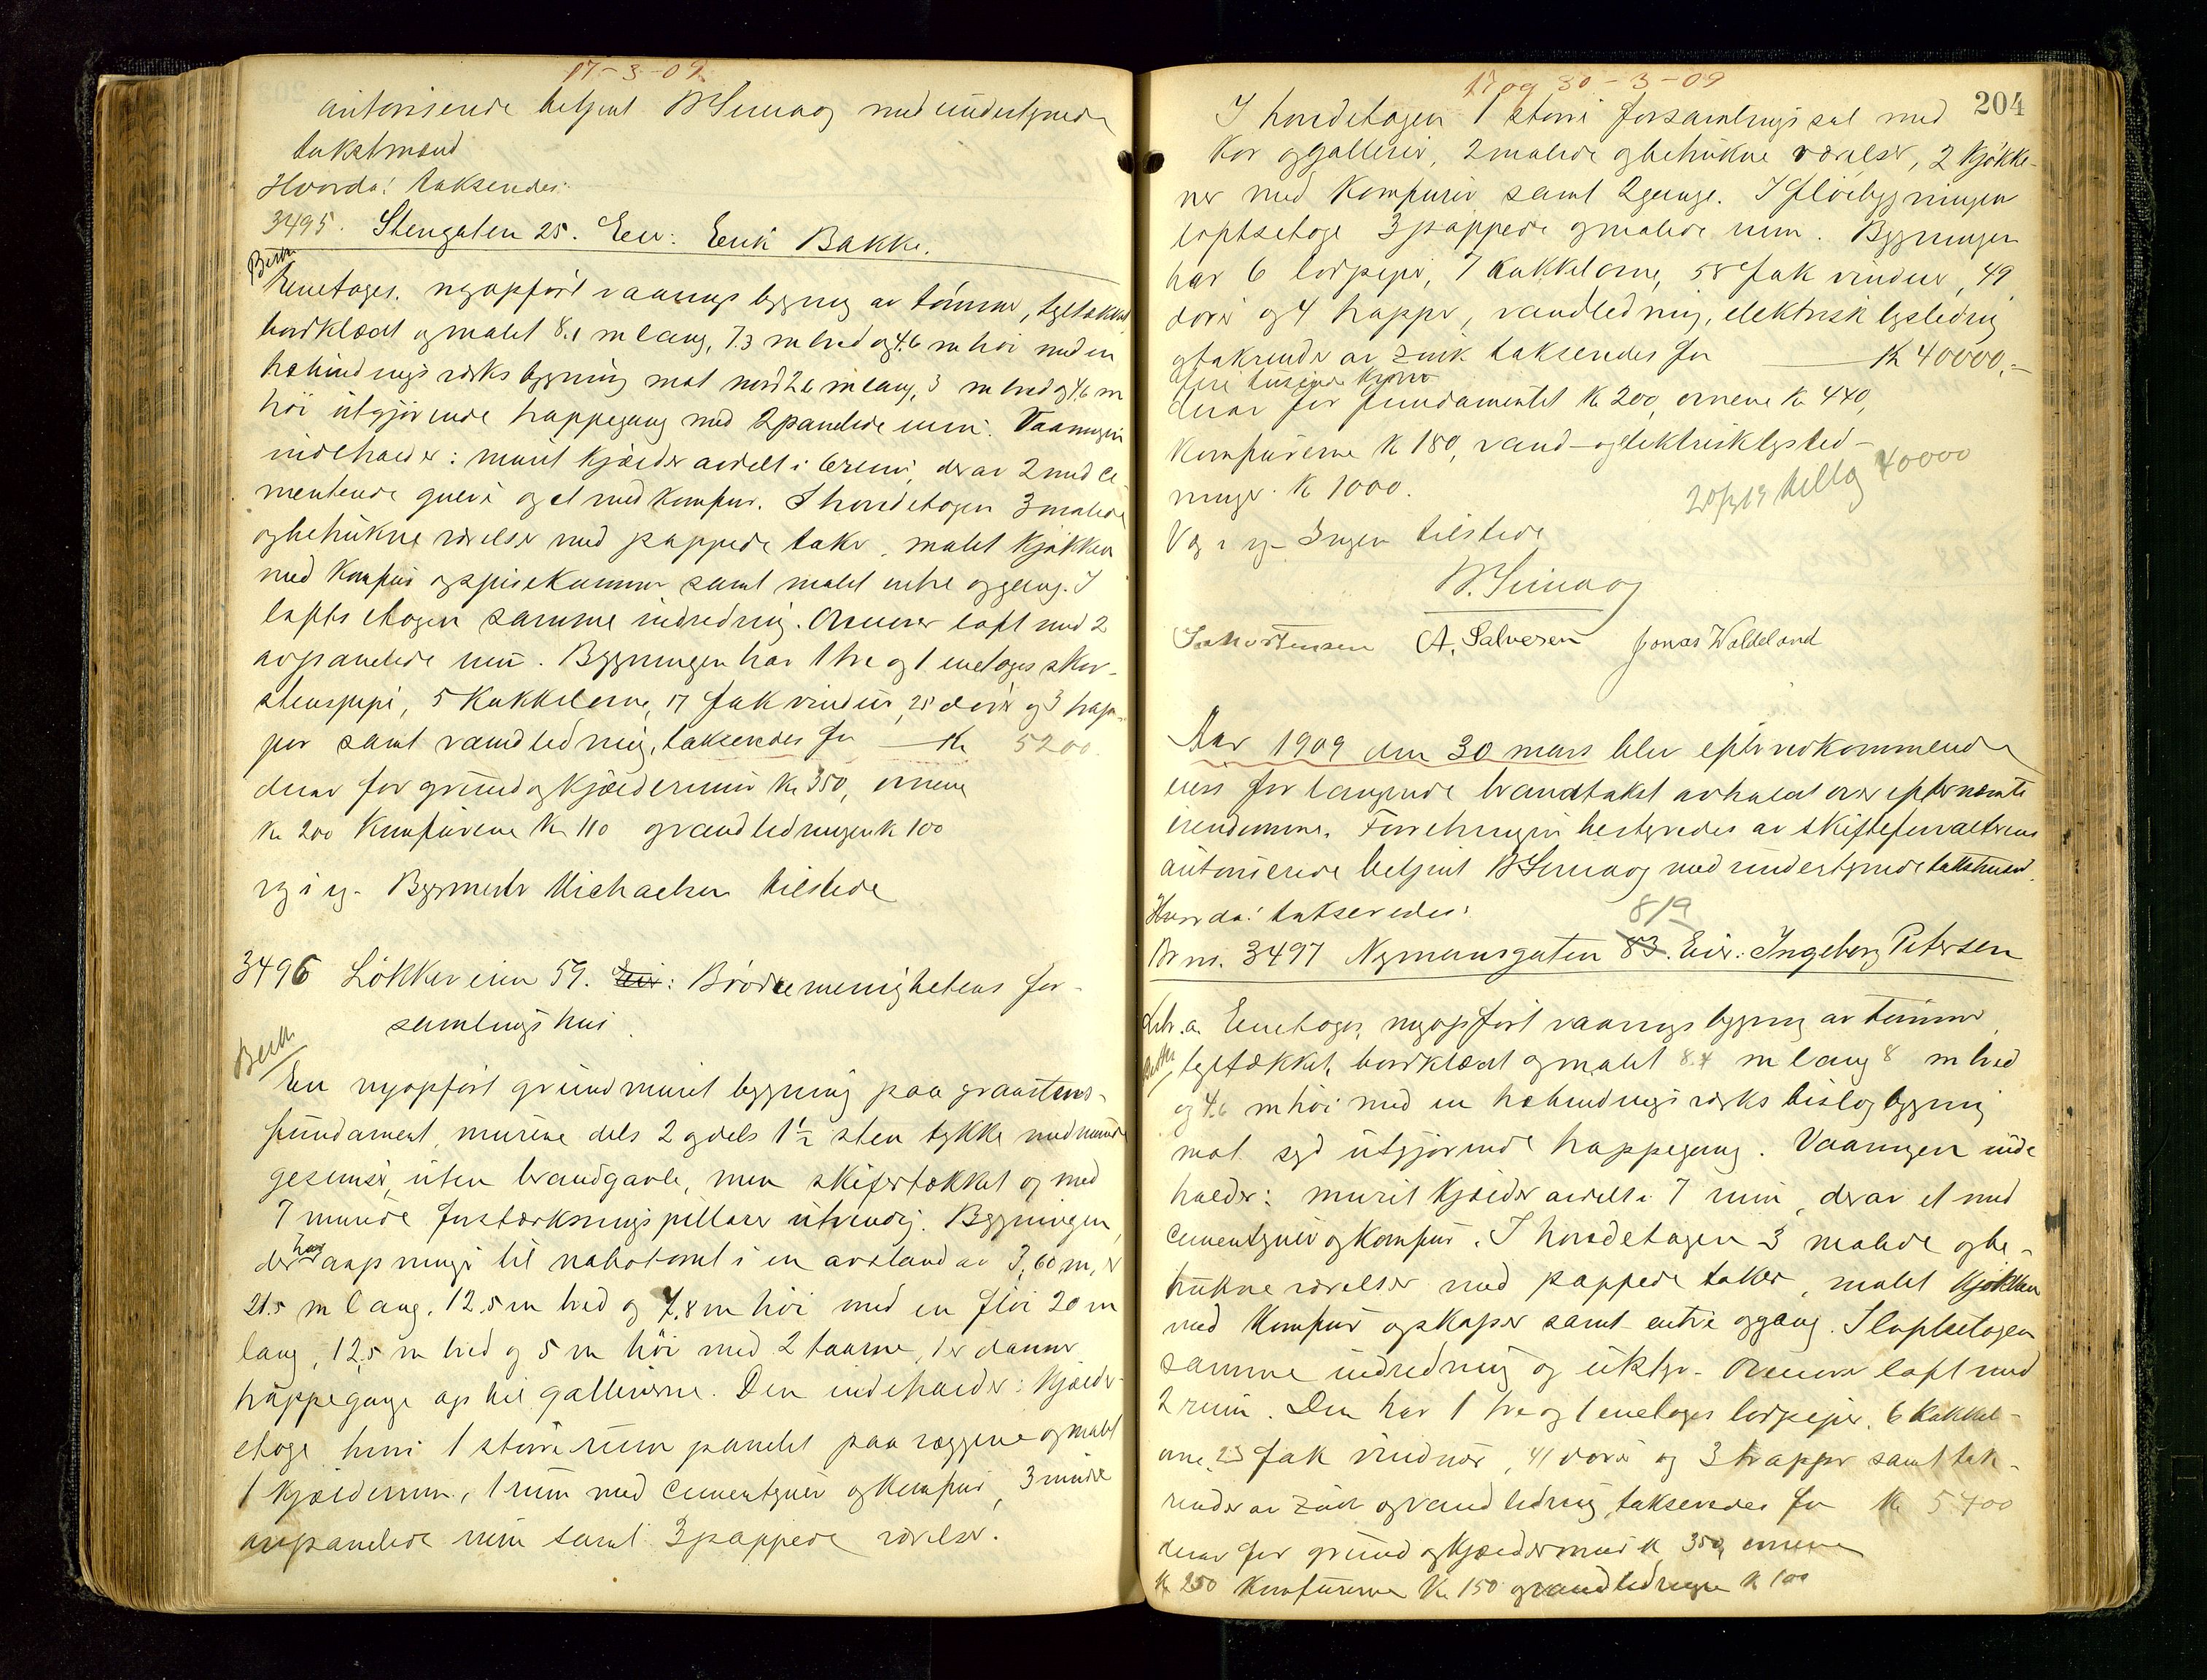 17-3-09
autoriserede betjent W Simaog med undertegnede
takstmænd
Hvorda: takseredes:
3495. Stengaten 25. Eier: Eerik Bakke.
Besk
Enetages, nyopført vaaningsbygning av tømmer, tegltækket,
bordklædt og malet 8.1 m lang, 7.3 m bred og 4.6 m høi med en
halvindbygningsværks bygning mot nord 2.6 m lang, 3 m bred og 4.6 m
høi utgjørende trappegang med 2 panelede rum. Vaaningen
indehaver: muret kjælder avdelt i 6 rum, derav 2 med ce-
menterede gulve og et med komfur. I hovedetagen 3 malede
og betrukne værelser med pappede take, malet kjøkken
med komfur og spisekammer samt malet entre og gang. I
loftsetagen samme indredning. Øverover loft med 2
avpanelede rum. Bygningen har 1 tre og 1 enetages skor-
stenspipe, 5 kakkelovne, 17 fak vinduer, 25 døre og 3 trap-
per samt vandledning, takseredes for Kr 5200.
derav for grund og kjældermur Kr 350, ovnene
Kr 200 Komfurene Kr 110 og vandledningen k 100
v g i g - Bygmester Michaelsen tilstede
3496 Løkkeveien 59. Eier: Brødremenighetens for-
samlingshus
Besk
En nyopført grundmuret bygning paa graastens-
fundament, murene dels 2 og dels 1½ sten tykke med murede
gesimser, uten brandgavle, men skifertækket og med
7 murede forstærkningspillarer utvendig. Bygningen,
der har aapninger til nabotomt i en avstand av 3,60 m, er
21.5 m lang, 12.5 m bred og 7.8 m høi med en fløi 20 m
lang, 12.5 m bred og 5 m høi med 2 taarne, der danner
trappegange op til gallerierne. Den indehaver: Kjælder-
etage hvori 1 større rum panelet paa væggene og malet
1 kjælderrum, 1 rum med cementgulv og komfur, 3 mindre
avpanelede rum samt 3 pappede værelser.
17 og 30-3-09
204
I hovedetagen 1 større forsamlingssal med
kor og gallerier, 2 malede og betrukne værelser, 2 kjøkke-
ner med komfurer samt 2 gange. I fløibygningen
loftsetage 3 pappede og malede rum. Bygningen
har 6 lodpiper, 7 kakkelovne, 58 fak vinduer, 49
døre og 4 trapper, vandledning, elektrisk lysledning
og takrender av zink takseredes for Kr 40000.-
firti tusinde kroner
derav for fundamentet Kr 200, ovnene Kr 440,
Komfurerne Kr 180, vand- og elektrisk lysled-
ninger Kr 1000.
20/2 19 tillæg 40000
V g i g - Ingen tilstede
W. Simaog
A. Salvesen Jonas Waldeland
Aar 1909 den 30 mars blev efter vedkommende
eiers forlangende brandtakst avholdt over efternævnte
eiendomme. Forretningen bestyredes av skifteforvalterens
autoriserede betjent W Simaog med undertegnede takstmænd.
Hvorda: takseredes:
Br no. 3497 Nymansgaten 83. 819 Eier: Ingeborg Petersen
Litr. a. Enetages, nyopført vaaningsbygning av tømmer,
Besk
tegltækket, bordklædt og malet 8.4 m lang 8 m bred
og 4.6 m høi med en halvindbygningsværks bislagbygning
mot syd utgjørende trappegang. Vaaningen inde
haver: muret kjælder avdelt i 7 rum, derav et med
cementgulv og komfur. I hovedetagen 3 malede og be-
trukne værelser med pappede taker, malet kjøkken
med komfur og skaper samt entre og gang. I loftsetagen
samme indredning og utstyr. Øverover loft med
2 rum. Den har 1 tre og 1 enetages lodpiper, 6 kakkel-
ovne, 23 fak vinduer, 41 døre og 3 trapper samt tak-
render av zink og vandledning takseredes for Kr 5400
derav for grund og kjældermur k 350, ovnene
Kr 250 komfurerne Kr 150 og vandledningen Kr 100